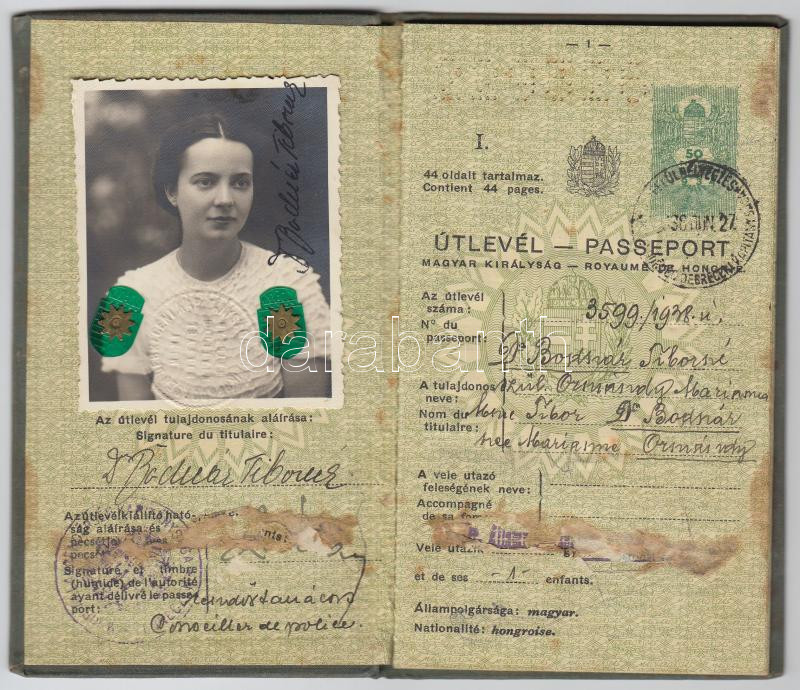 Dr Bodnár Tiborné
Az útlevél tulajdonosának aláírása:
Signature du titulaire:
Dr Bodnár Tiborné
Az útlevélkiállító ható-
ság aláírása és
Signature et timbre
(humide) de l'autorité
ayant délivré le passe-
port:
rendőrtanácsos
Conseiller de police
— 1 —
I.
44 oldalt tartalmaz.
Contient 44 pages.
50
38 JUN. 27
DEBRECEN
ÚTLEVÉL — PASSEPORT
MAGYAR KIRÁLYSÁG — ROYAUME DE HONGRIE
Az útlevél
száma:
N° du
passeport:
3599./1938.
Dr Bodnár Tiborné
A tulajdonos
neve:
szül. Ormándy Marianna
Nom du
titulaire:
Mme Tibor Dr Bodnár
née Marianne Ormándy
A vele utazó
feleségének neve:
Accompagné
de sa
Vele
et de ses -1- enfants.
Állampolgársága: magyar.
Nationalité: hongroise.
darabanth